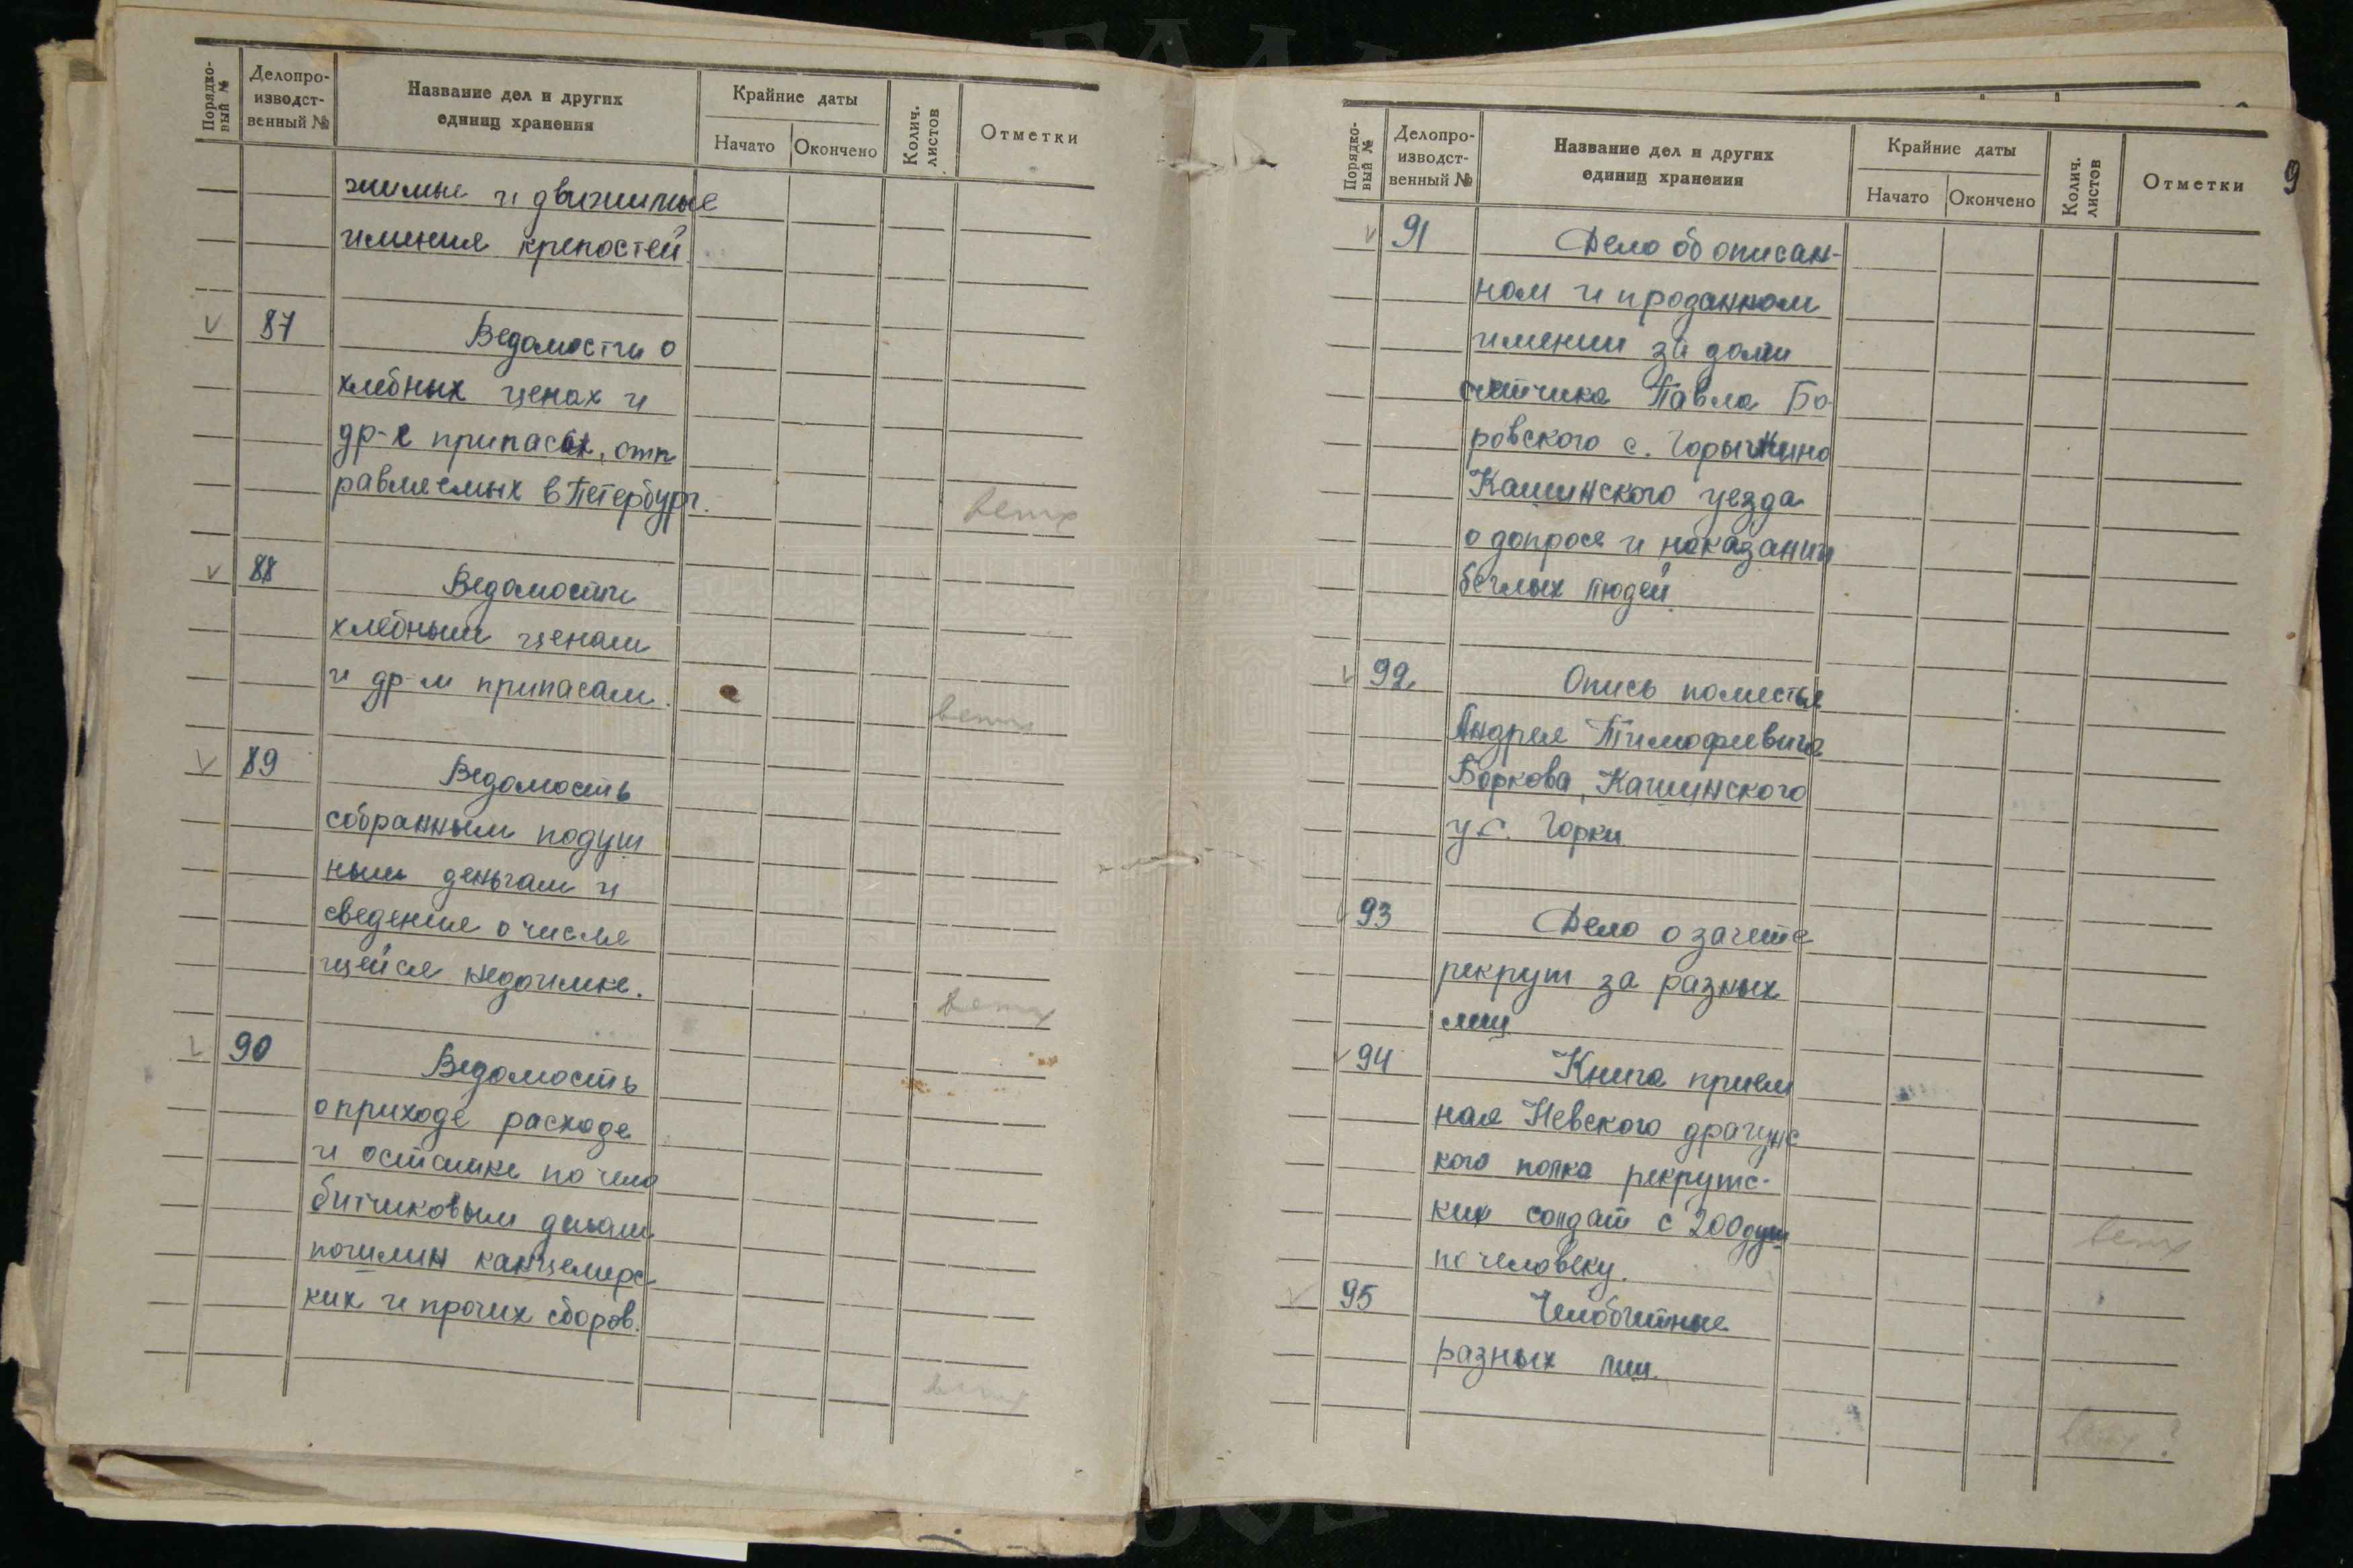 Порядко-
вый №
Делопро-
изводст-
венный №
Название дел и других
единиц хранения
Крайние даты
Начато
Окончено
Колич.
листов
Отметки
жимые и движимые
имения крепостей.
87
Ведомости о
хлебных ценах и
др-х припасах, отп
равляемых в Петербург.
ветх
88
Ведомости
хлебным ценам
и др-м припасам.
ветх
89
Ведомость
собранным подуш
ным деньгам и
сведения о числя
щейся недоимке.
ветх
90
Ведомость
о приходе расходе
и остатке по чело
битчиковым делам
пошлин канцелярс
ких и прочих сборов.
ветх
Порядко-
вый №
Делопро-
изводст-
венный №
Название дел и других
единиц хранения
Крайние даты
Начато
Окончено
Колич.
листов
Отметки
9
91
Дело об описан-
ном и проданном
имении за долги
счетчика Павла Бо-
ровского с.
Кашинского уезда
о допросе и наказании
беглых людей.
92
Опись поместья
Андрея Тимофеевича
Боркова, Кашинского
у. с. Горки
93
Дело о зачете
рекрут за разных
лиц
94
Книга прием
ная Невского драгунс
кого полка рекрутс-
ких солдат с 200 душ
по человеку.
ветх
95
Челобитные
разных лиц.
ветх ?